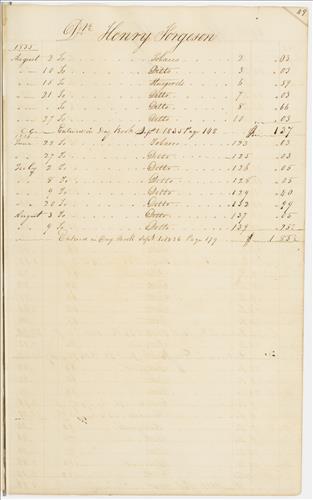 49
Dr. Henry Forgeson
1835
August 3 To Tobacco 2 .03
" 10 To Ditto 3 .03
" 15 To 6 .59
" 21 To Ditto 7 .03
" " To Ditto 8 .66
" 27 To Ditto 10 .03
Entered in Day Book Sept 1. 1835 Page 148 $ 1.37
June 22 To Tobacco 123 .03
" 27 To Ditto 125 .03
July 2 To Ditto 126 .05
" 8 To Ditto 128 .05
" 9 To Ditto 129
" 20 To Ditto 132
August 3 To Ditto 137 .05
" 9 To Ditto 139
Entered in Day Book Sept 1. 1836 Page 179 $ 1.85